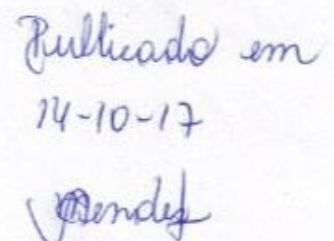 Publicado em
14-10-17
Mendes